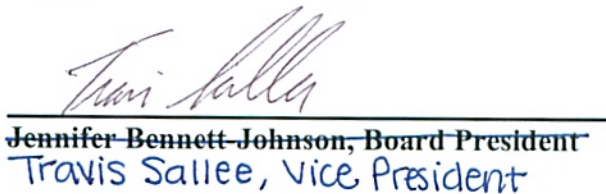 Travis Sallee
Jennifer Bennett-Johnson, Board President
Travis Sallee, Vice President